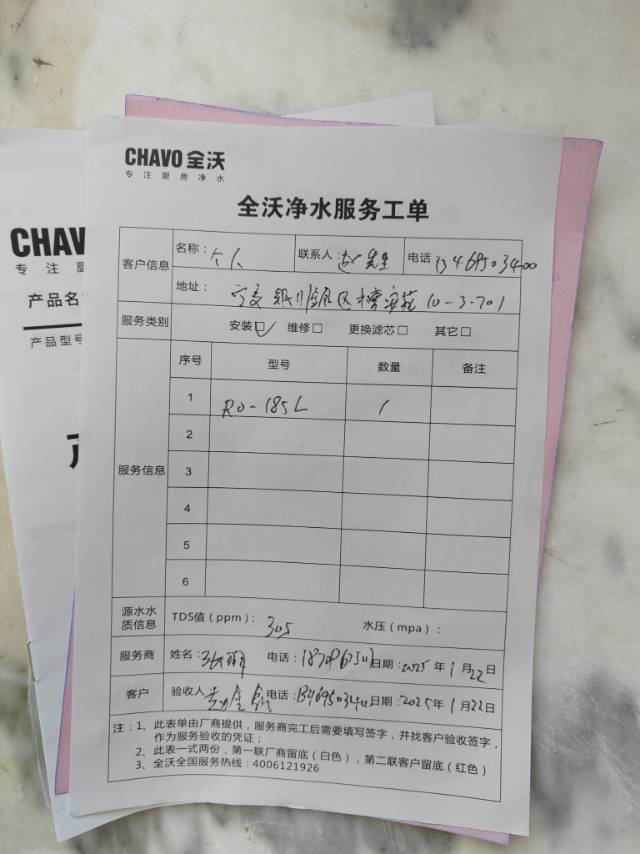 CHAVO 全沃
专注厨房净水
全沃净水服务工单
CHAVO
专注厨
产品名
产品型号
客户信息 名称：个人 联系人：赵先生 电话 13469503400
地址：宁夏 银川 10-3-701
服务类别 安装☑ 维修□ 更换滤芯□ 其它□
服务信息 序号 型号 数量 备注
1 RO-185L 1
2
3
4
5
6
源水水质信息 TDS值（ppm）：305 水压（mpa）：
服务商 姓名： 电话： 日期：2025年1月22日
客户 验收人 电话： 日期：2025年1月22日
注：1、此表单由厂商提供，服务商完工后需要填写签字，并找客户验收签字，
作为服务验收的凭证；
2、此表一式两份，第一联厂商留底（白色），第二联客户留底（红色）
3、全沃全国服务热线：4006121926